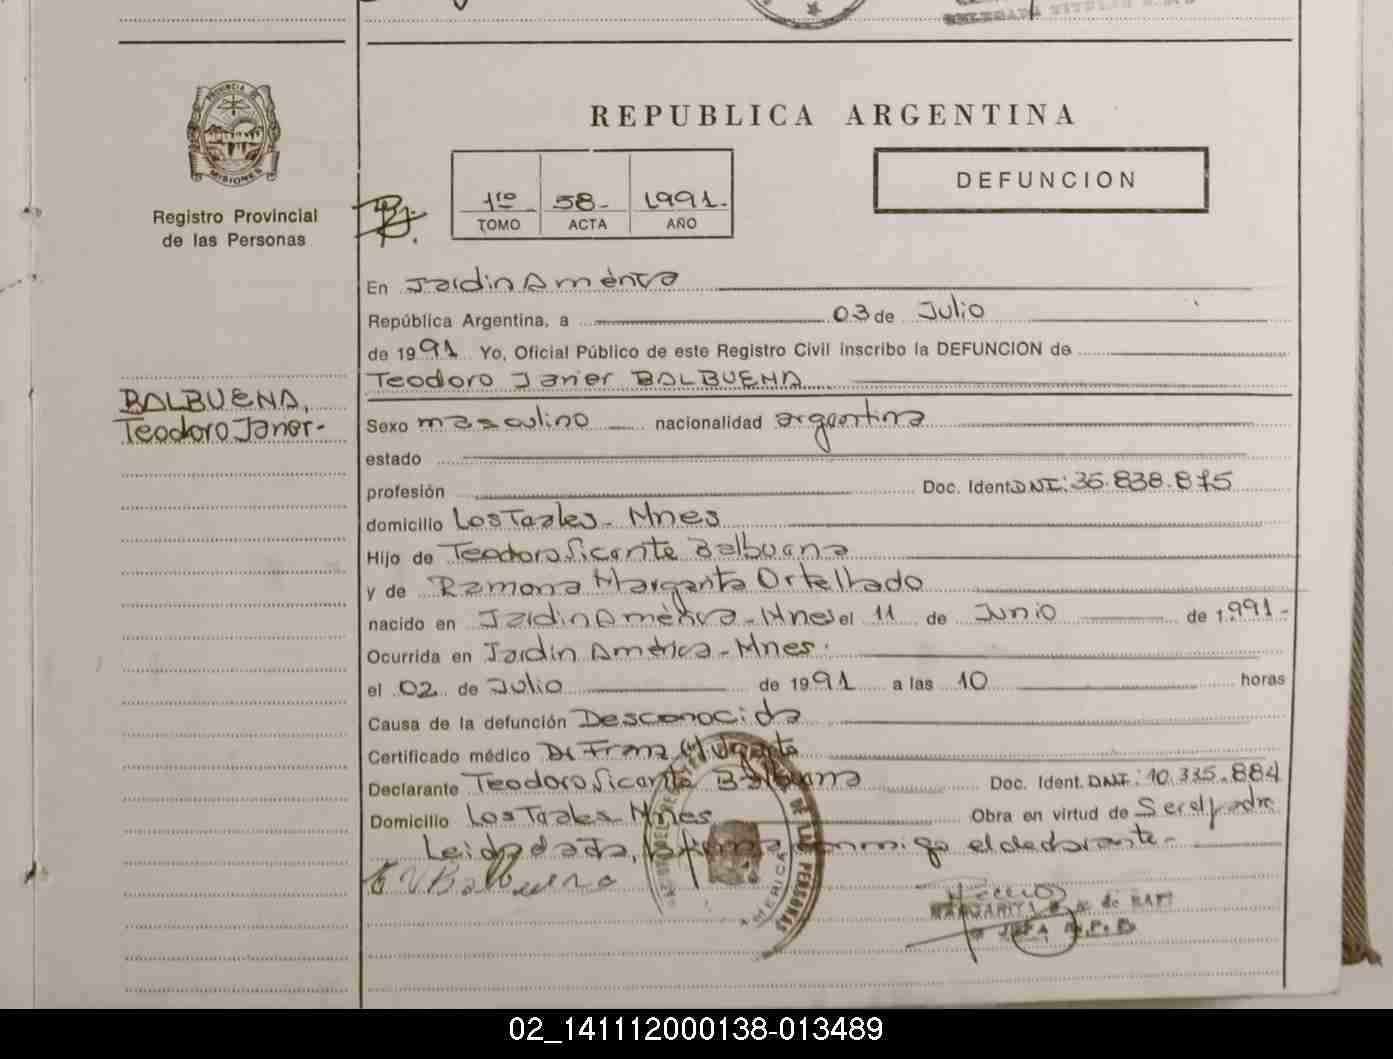 REPUBLICA ARGENTINA
PROVINCIA DE
MISIONES
Registro Provincial
de las Personas
1ro 58- 1991-
TOMO ACTA AÑO
DEFUNCION
En Jardin América
República Argentina, a 03 de Julio
de 1991 Yo, Oficial Público de este Registro Civil inscribo la DEFUNCION de
Teodoro Javier BALBUENA
BALBUENA,
Teodoro Javier-
Sexo masculino nacionalidad argentina
estado
profesión Doc. Ident. DNI: 36.838.875
domicilio Los Teales- Mnes
Hijo de Teodoro Vicente Balbuena
y de Ramona Margarita Ortellado
nacido en Jardin América-Mnes el 11 de Junio de 1.991-
Ocurrida en Jardin América-Mnes.
el 02 de Julio de 1991 a las 10 horas
Causa de la defunción Desconocida
Certificado médico Dr Franz
Declarante Teodoro Vicente Balbuena Doc. Ident. DNI: 10.335.884
Domicilio Los Teales Mnes Obra en virtud de Ser el padre
Leida acta, la firma conmigo el declarante-
T V Balbuena
DE LAS PERSONAS
AMERICA
MARGARITA de
JEFA R.P.P
02_141112000138-013489